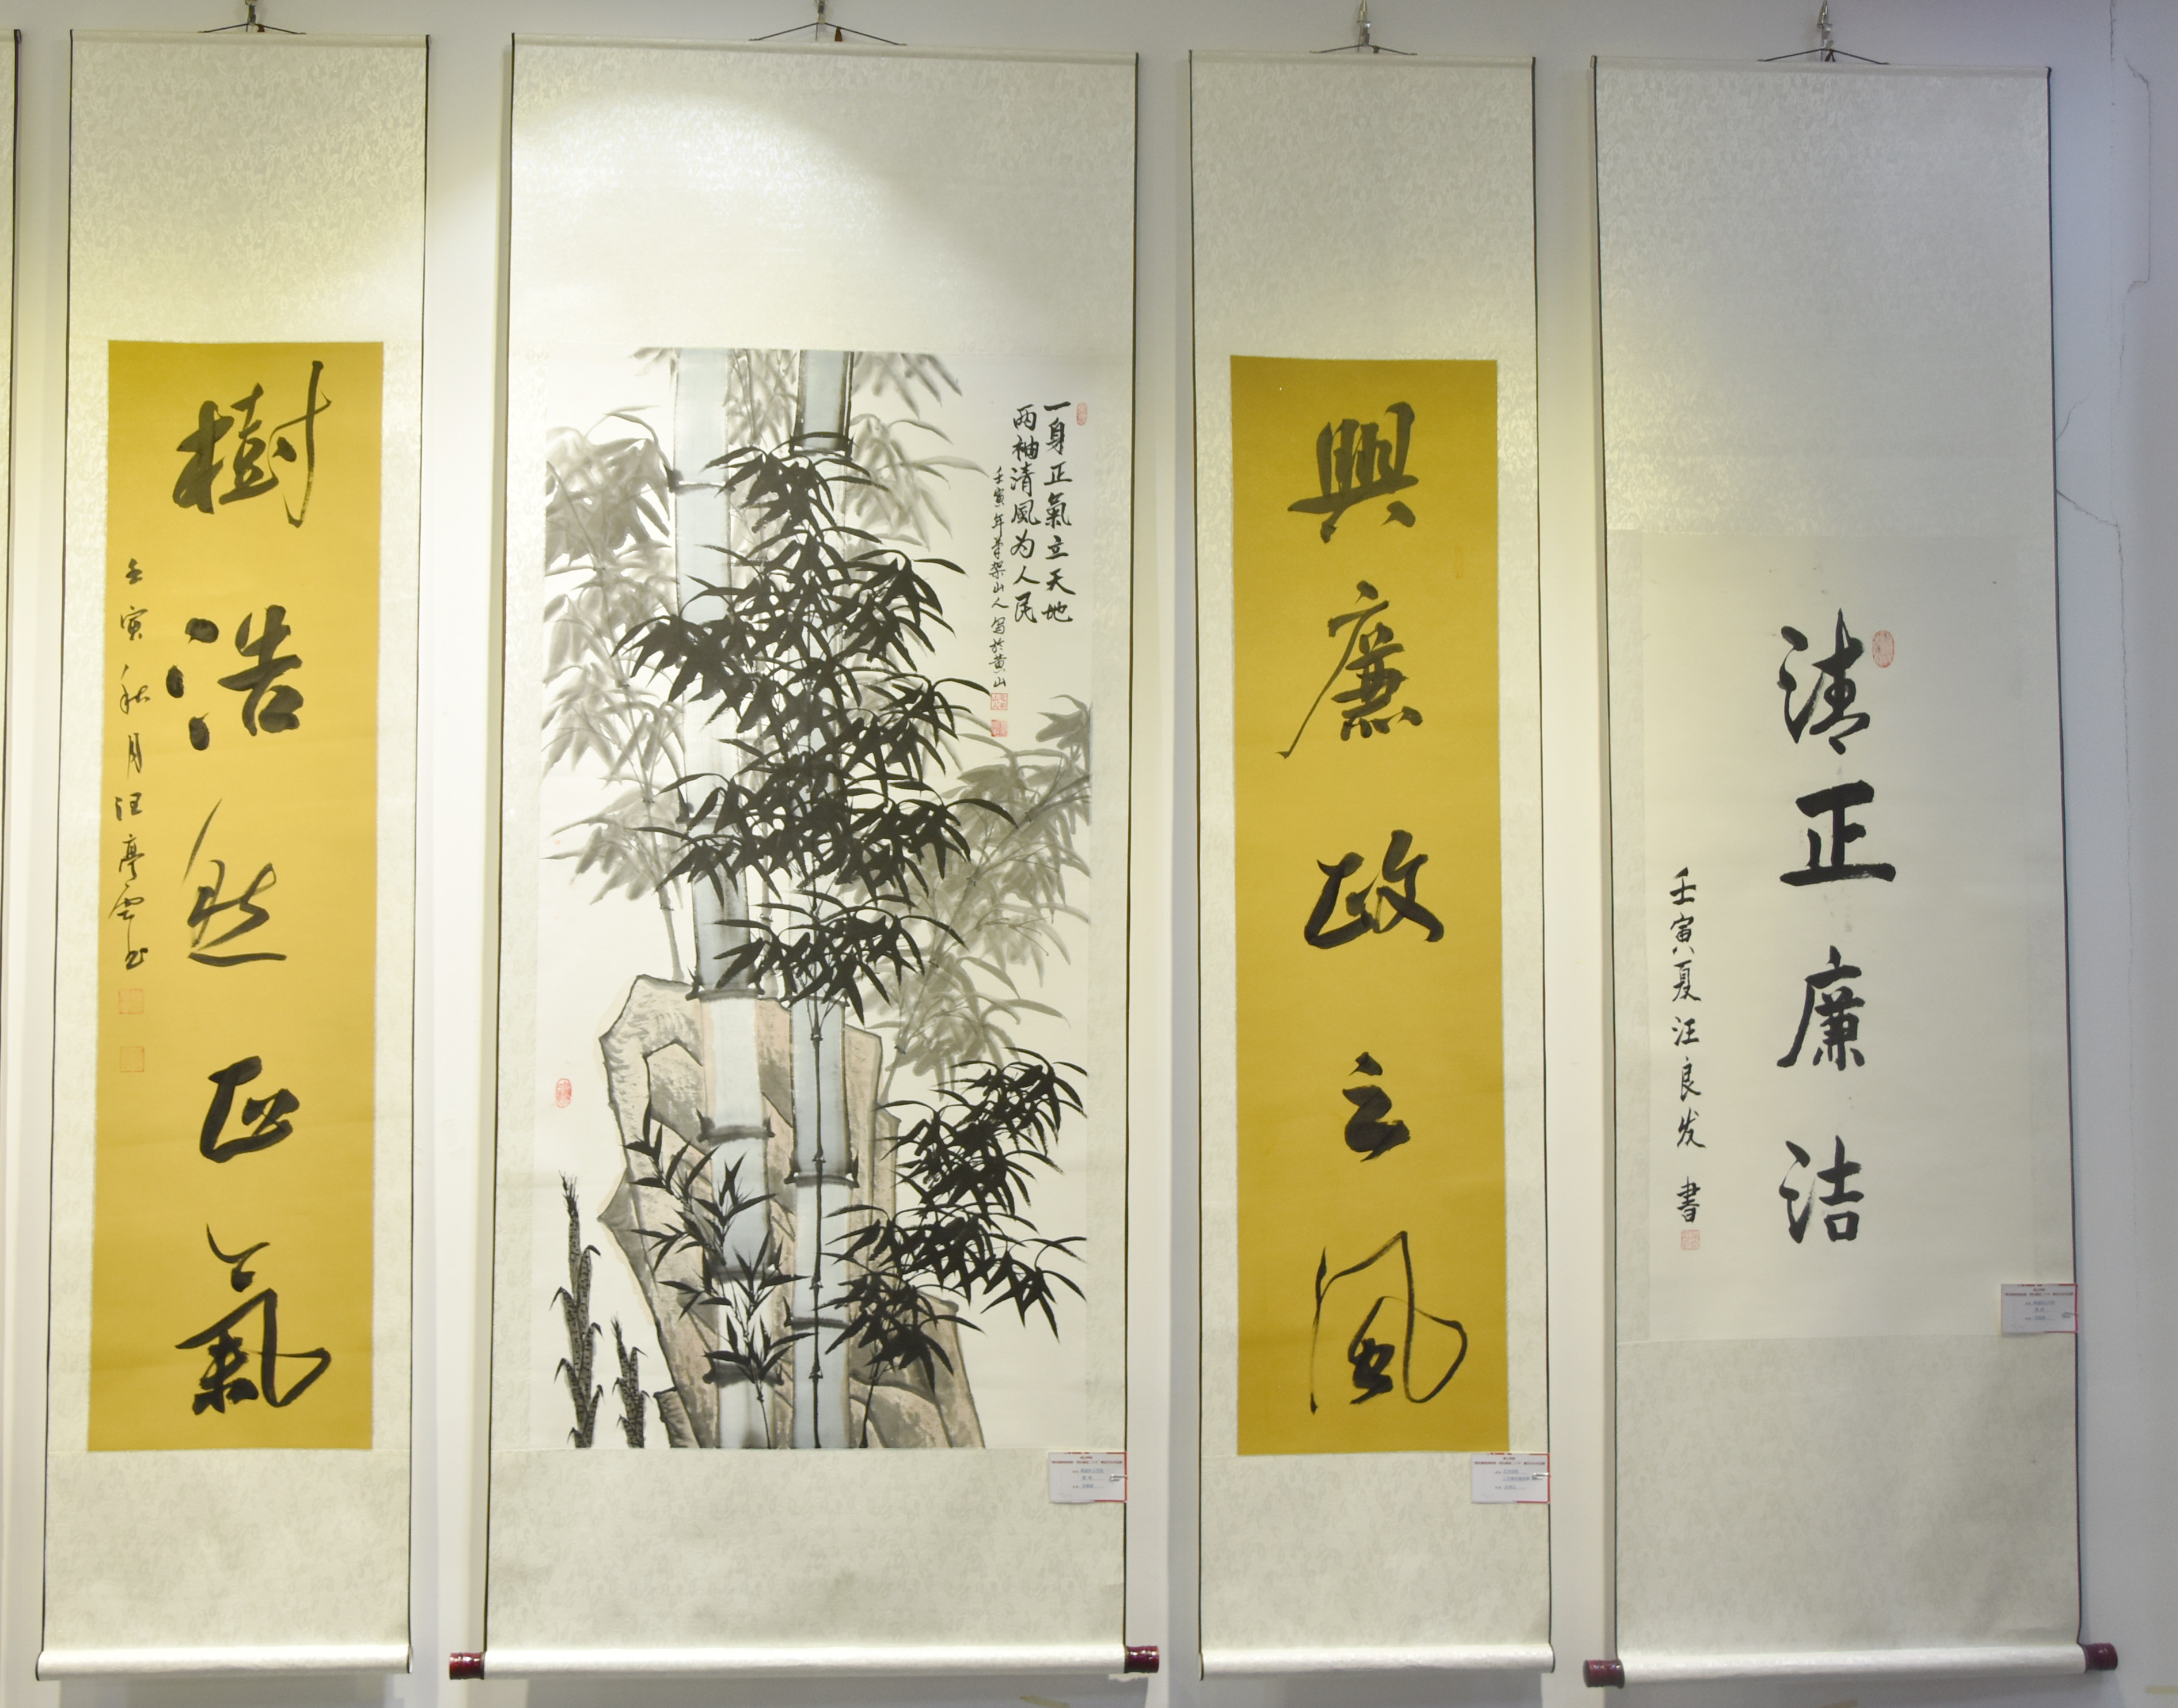 清正廉洁
壬寅夏汪良发 書
興廉政之風
一身正氣立天地
两袖清風为人民
壬寅年筆架山人寫於黄山
樹浩然正氣
壬寅秋月汪亭雲书